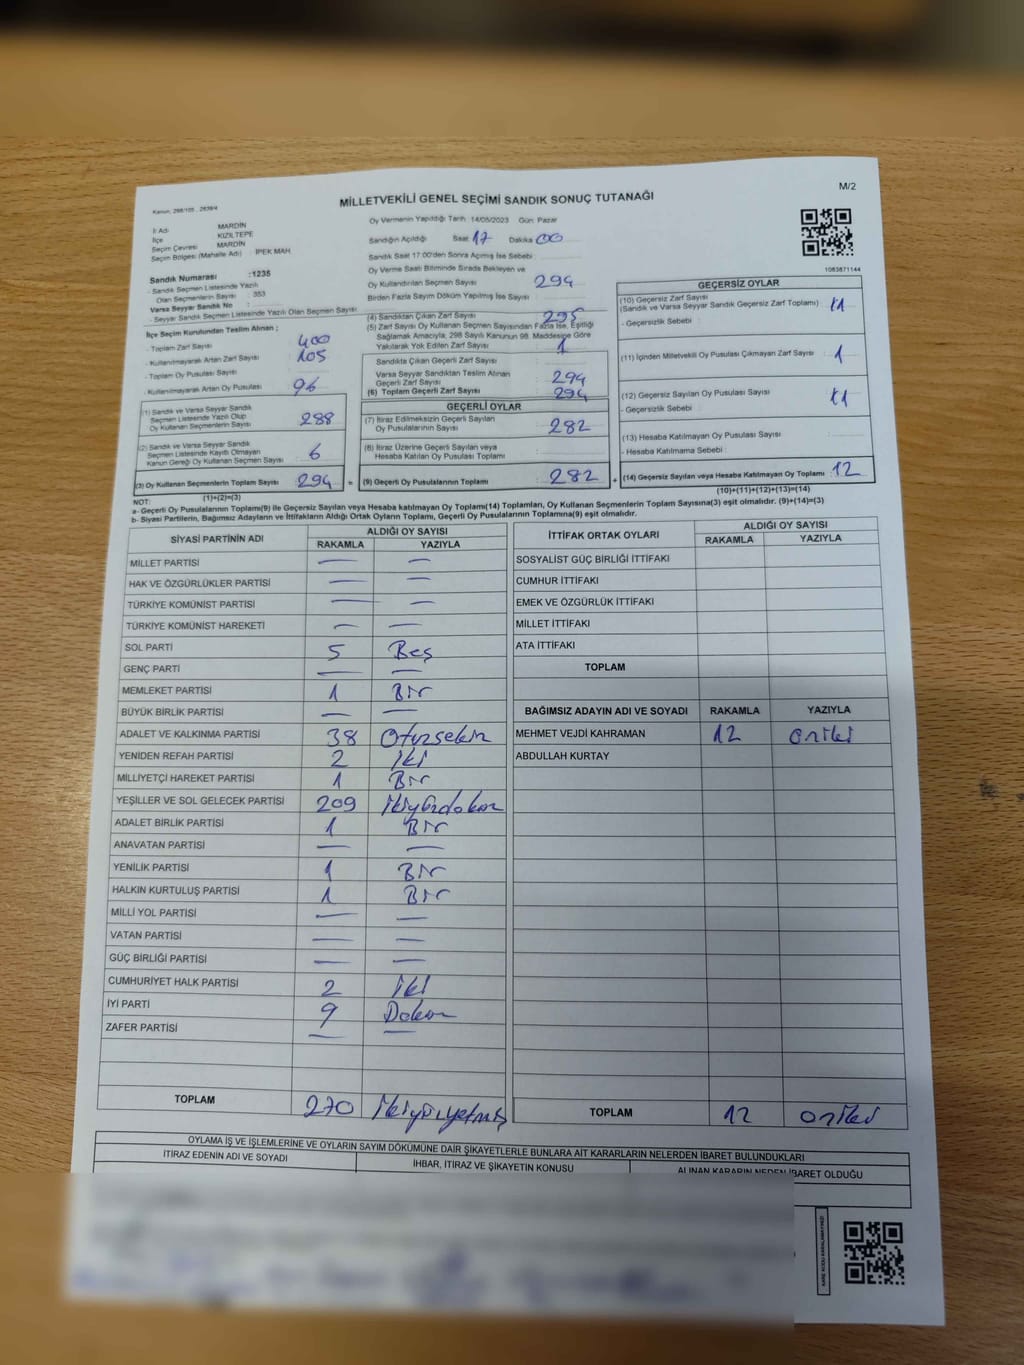 M/2
MİLLETVEKİLİ GENEL SEÇİMİ SANDIK SONUÇ TUTANAĞI
Kanun: 298/105 , 2839/4
İl Adı MARDİN
İlçe KIZILTEPE
Seçim Çevresi MARDİN
Seçim Bölgesi (Mahalle Adı) İPEK MAH
Sandık Numarası :1235
- Sandık Seçmen Listesinde Yazılı
Olan Seçmenlerin Sayısı : 353
Varsa Seyyar Sandık No :
- Seyyar Sandık Seçmen Listesinde Yazılı Olan Seçmen Sayısı
İlçe Seçim Kurulundan Teslim Alınan ;
- Toplam Zarf Sayısı 400
- Kullanılmayarak Artan Zarf Sayısı 105
- Toplam Oy Pusulası Sayısı
- Kullanılmayarak Artan Oy Pusulası 96
(1) Sandık ve Varsa Seyyar Sandık
Seçmen Listesinde Yazılı Olup
Oy Kullanan Seçmenlerin Sayısı 288
(2) Sandık ve Varsa Seyyar Sandık
Seçmen Listesinde Kayıtlı Olmayan
Kanun Gereği Oy Kullanan Seçmen Sayısı 6
(3) Oy Kullanan Seçmenlerin Toplam Sayısı 294 =
(1)+(2)=(3)
Oy Vermenin Yapıldığı Tarih 14/05/2023 Gün: Pazar
Sandığın Açıldığı Saat 17 Dakika 00
Sandık Saat 17:00'den Sonra Açılmış İse Sebebi :
Oy Verme Saati Bitiminde Sırada Bekleyen ve
Oy Kullandırılan Seçmen Sayısı 294
Birden Fazla Sayım Döküm Yapılmış İse Sayısı
(4) Sandıktan Çıkan Zarf Sayısı 295
(5) Zarf Sayısı Oy Kullanan Seçmen Sayısından Fazla İse, Eşitliği
Sağlamak Amacıyla, 298 Sayılı Kanunun 98. Maddesine Göre
Yakılarak Yok Edilen Zarf Sayısı 1
Sandıkta Çıkan Geçerli Zarf Sayısı
Varsa Seyyar Sandıktan Teslim Alınan
Geçerli Zarf Sayısı 294
(6) Toplam Geçerli Zarf Sayısı 294
GEÇERLİ OYLAR
(7) İtiraz Edilmeksizin Geçerli Sayılan
Oy Pusulalarının Sayısı 282
(8) İtiraz Üzerine Geçerli Sayılan veya
Hesaba Katılan Oy Pusulası Toplamı
(9) Geçerli Oy Pusulalarının Toplamı 282 +
1083871144
GEÇERSİZ OYLAR
(10) Geçersiz Zarf Sayısı
(Sandık ve Varsa Seyyar Sandık Geçersiz Zarf Toplamı) :
- Geçersizlik Sebebi :
(11) İçinden Milletvekili Oy Pusulası Çıkmayan Zarf Sayısı : 1
(12) Geçersiz Sayılan Oy Pusulası Sayısı :
- Geçersizlik Sebebi :
(13) Hesaba Katılmayan Oy Pusulası Sayısı :
- Hesaba Katılmama Sebebi :
(14) Geçersiz Sayılan veya Hesaba Katılmayan Oy Toplamı : 12
(10)+(11)+(12)+(13)=(14)
NOT:
a- Geçerli Oy Pusulalarının Toplamı(9) ile Geçersiz Sayılan veya Hesaba katılmayan Oy Toplamı(14) Toplamları, Oy Kullanan Seçmenlerin Toplam Sayısına(3) eşit olmalıdır. (9)+(14)=(3)
b- Siyasi Partilerin, Bağımsız Adayların ve İttifakların Aldığı Ortak Oyların Toplamı, Geçerli Oy Pusulalarının Toplamına(9) eşit olmalıdır.
SİYASİ PARTİNİN ADI ALDIĞI OY SAYISI
RAKAMLA YAZIYLA
MİLLET PARTİSİ — —
HAK VE ÖZGÜRLÜKLER PARTİSİ — —
TÜRKİYE KOMÜNİST PARTİSİ — —
TÜRKİYE KOMÜNİST HAREKETİ — —
SOL PARTİ 5 Beş
GENÇ PARTİ — —
MEMLEKET PARTİSİ 1 Bir
BÜYÜK BİRLİK PARTİSİ — —
ADALET VE KALKINMA PARTİSİ 38 Otuzsekiz
YENİDEN REFAH PARTİSİ 2 iki
MİLLİYETÇİ HAREKET PARTİSİ 1 Bir
YEŞİLLER VE SOL GELECEK PARTİSİ 209 ikiyüzdokuz
ADALET BİRLİK PARTİSİ 1 Bir
ANAVATAN PARTİSİ — —
YENİLİK PARTİSİ 1 Bir
HALKIN KURTULUŞ PARTİSİ 1 Bir
MİLLİ YOL PARTİSİ — —
VATAN PARTİSİ — —
GÜÇ BİRLİĞİ PARTİSİ — —
CUMHURİYET HALK PARTİSİ 2 iki
İYİ PARTİ 9 Dokuz
ZAFER PARTİSİ — —
TOPLAM 270 ikiyüzyetmiş
İTTİFAK ORTAK OYLARI ALDIĞI OY SAYISI
RAKAMLA YAZIYLA
SOSYALİST GÜÇ BİRLİĞİ İTTİFAKI
CUMHUR İTTİFAKI
EMEK VE ÖZGÜRLÜK İTTİFAKI
MİLLET İTTİFAKI
ATA İTTİFAKI
TOPLAM
BAĞIMSIZ ADAYIN ADI VE SOYADI RAKAMLA YAZIYLA
MEHMET VEJDİ KAHRAMAN 12 oniki
ABDULLAH KURTAY
TOPLAM 12 oniki
OYLAMA İŞ VE İŞLEMLERİNE VE OYLARIN SAYIM DÖKÜMÜNE DAİR ŞİKAYETLERLE BUNLARA AİT KARARLARIN NELERDEN İBARET BULUNDUKLARI
İTİRAZ EDENİN ADI VE SOYADI İHBAR, İTİRAZ VE ŞİKAYETİN KONUSU ALINAN KARARIN NEDEN İBARET OLDUĞU
KARE KODU KARALAMAYINIZ!